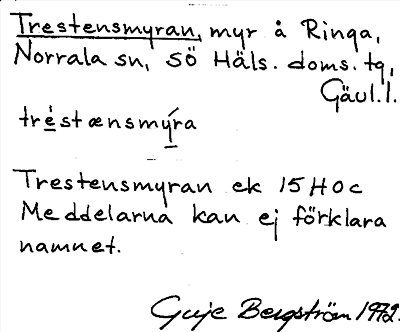 Trestensmyran, myr å Ringa,
Norrala sn, SÖ Häls. doms. tg,
Gävl.l.
tréstænsmýra
Trestensmyran ek 15H0c
Meddelarna kan ej förklara
namnet.
Guje Bergström 1972.